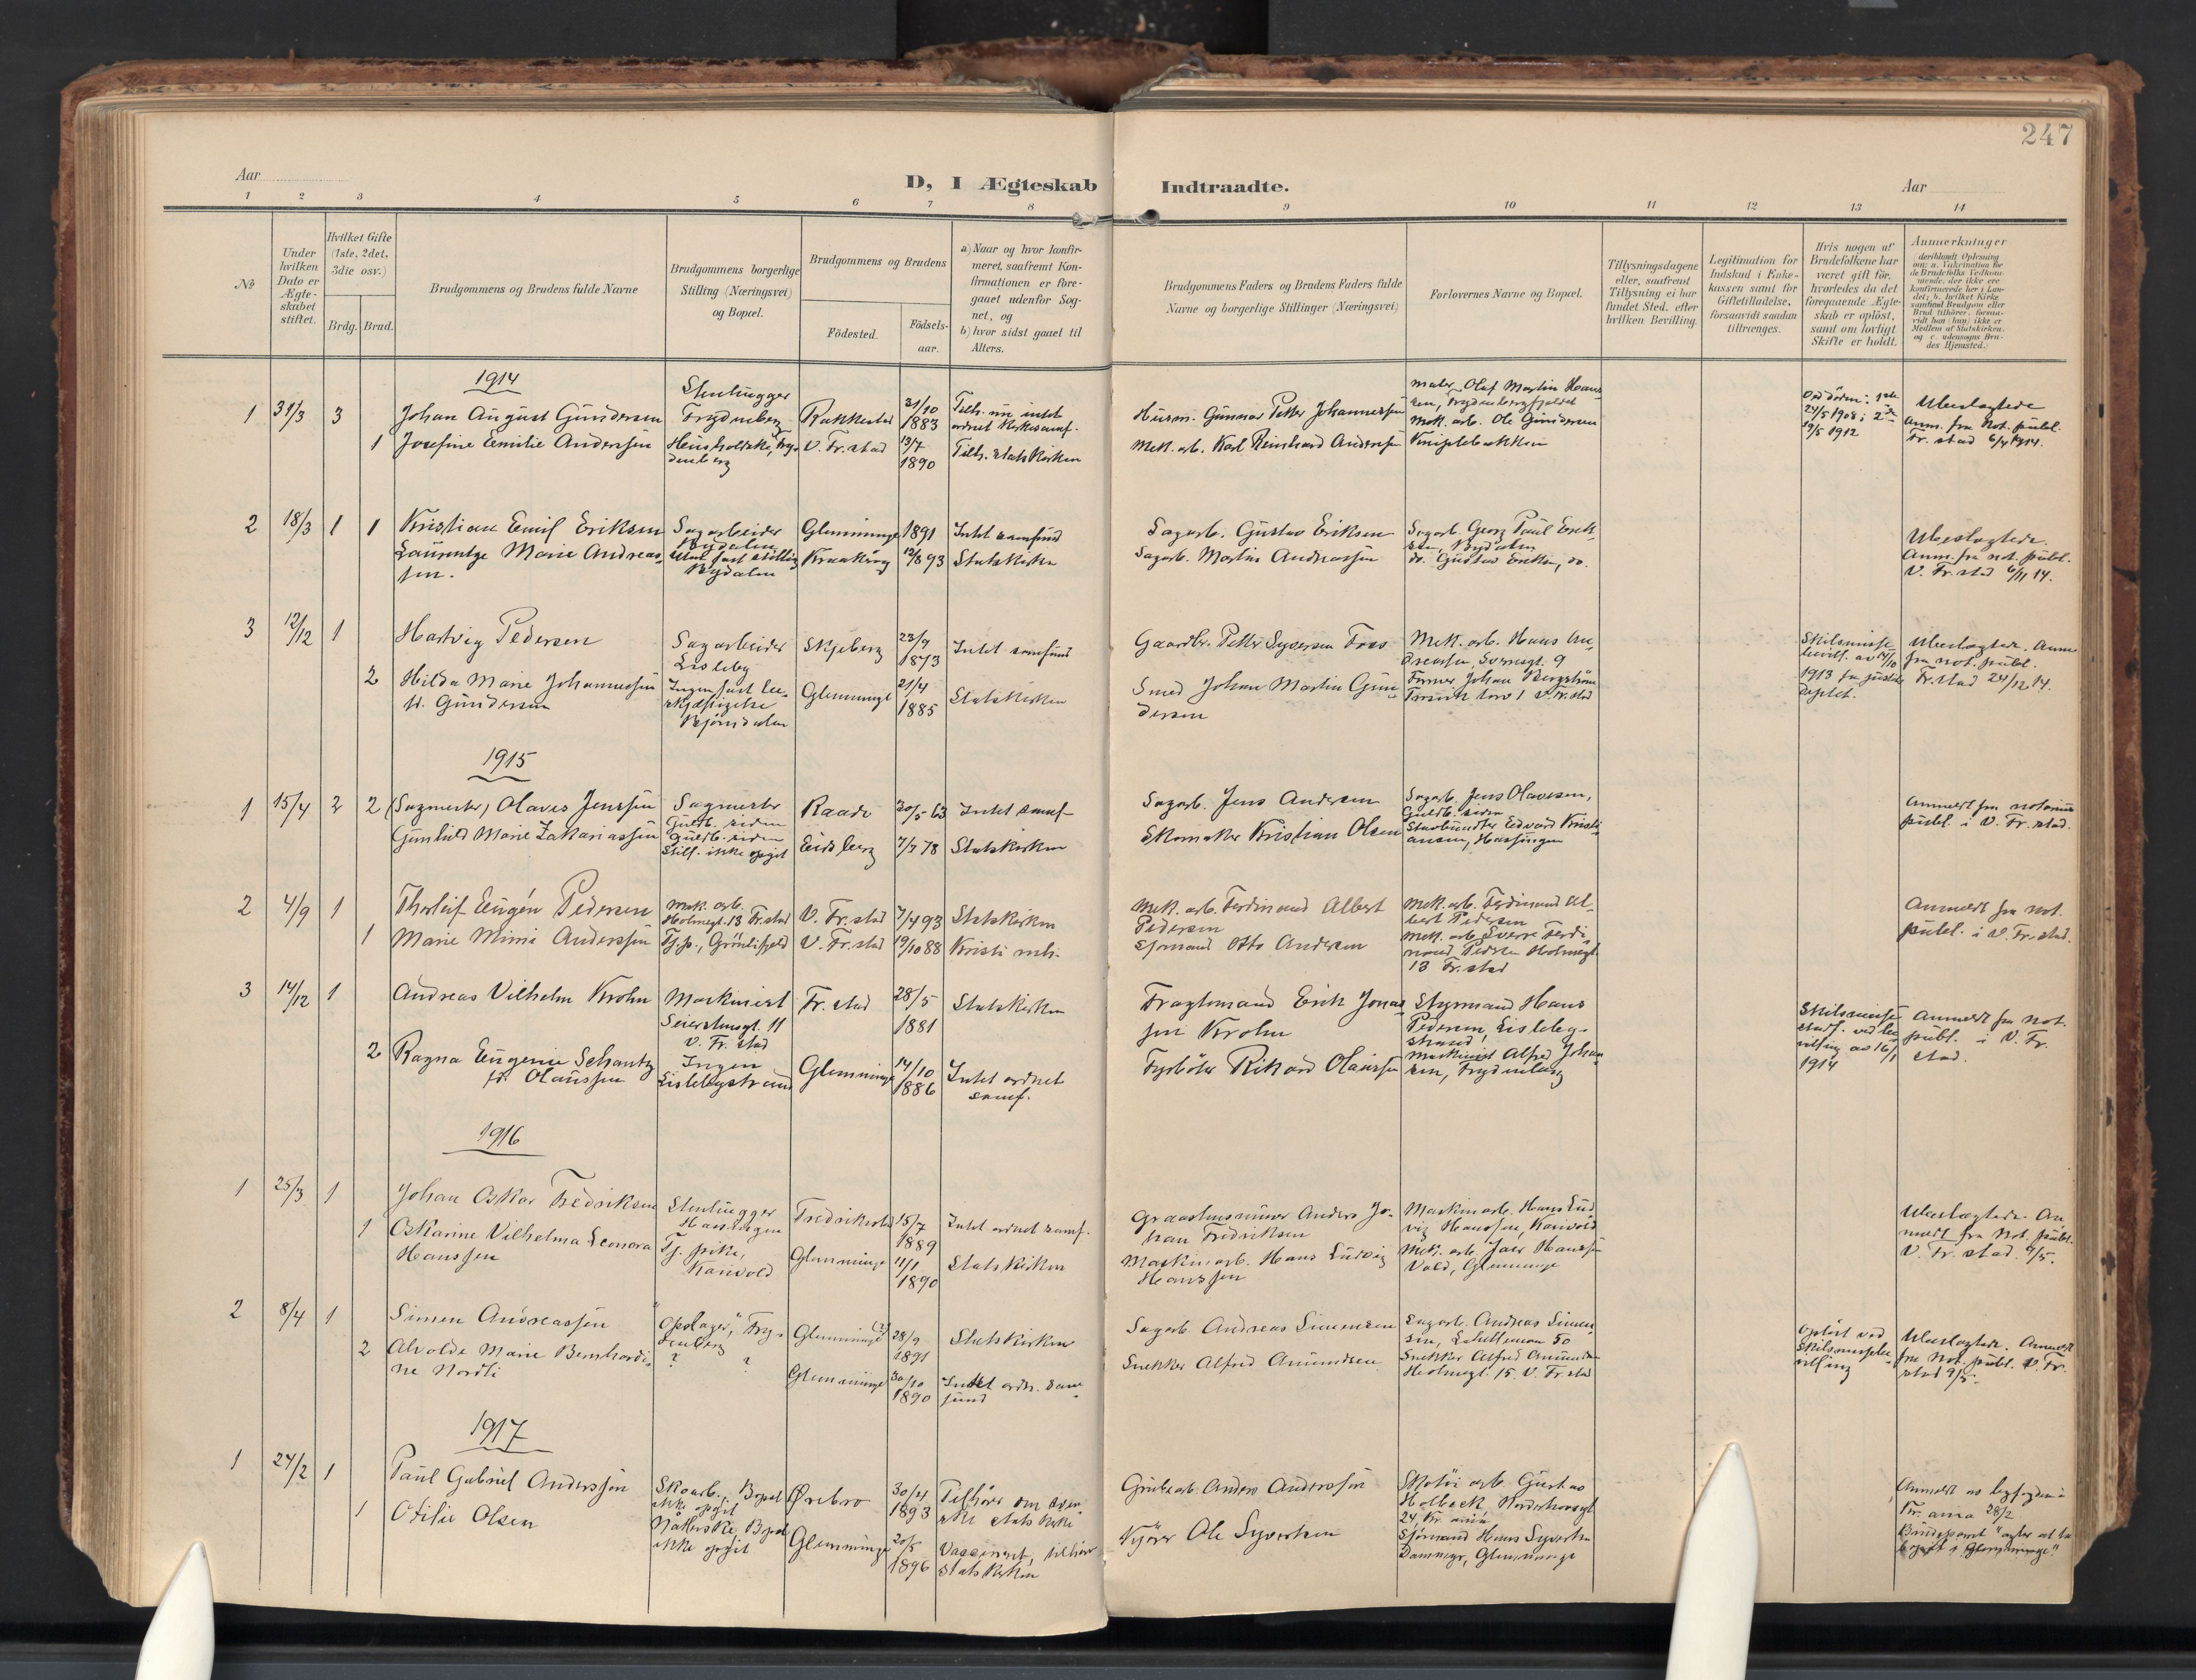 247
Aar
D, I Ægteskab Indtraadte.
Aar
1 2 3 4 5 6 7 8 9 10 11 12 13 14
No
Under hvilken Dato er Ægte-skabet stiftet.
Hvilket Gifte (1ste, 2det, 3die osv.)
Brdg. Brud.
Brudgommens og Brudens fulde Navne
Brudgommens borgerlige Stilling (Næringsvei) og Bopæl.
Brudgommens og Brudens
Födested.
Födsels-aar.
a) Naar og hvor konfir-meret, saafremt Kon-firmationen er fore-gaaet udenfor Sog-net, og
b) hvor sidst gaaet til Alters.
Brudgommens Faders og Brudens Faders fulde Navne og borgerlige Stillinger (Næringsvei)
Forlovernes Navne og Bopæl.
Tillysningsdagene eller, saafremt Tillysning ei har fundet Sted, efter hvilken Bevilling.
Legitimation for Indskud i Enke-kassen samt for Giftetilladelse, forsaavidt saadan tiltrænges.
Hvis nogen af Brudefolkene har været gift før, hvorledes da det foregaaende Ægte-skab er oplöst, samt om lovligt Skifte er holdt.
Anmerkninger
1914
1 31/3 3
Johan August Gundersen
Stenhugger
Frydenberg
Rakkestad
31/10
1883
Tilh. nu intet
ordnet kirkesamf.
Husm. Gunnar Petter Johannessen
maler Olaf Martin Han-
sen, Frydenbergfjeldet
Mek. arb. Ole Gundersen
Ved döden: 1ste
24/5 1908; 2de
19/5 1912
Ubeslagtede
anm. fra Not. publ.
Fr. stad 6/4 1914.
1
Josefine Emilie Andersen
V. Fr. stad
13/7
1890
Tilh. statskirken
Mek. arb. Karl Reinhard Andersen
2 18/3 1 1
Kristian Emil Eriksen
Sagarbeider
Glemminge
1891
Intet samfund
Sagarb. Gustav Eriksen
Sagarb. Georg Paul Erik-
sen, Nydalen
Ubeslagtede.
Anm. fra not. publ.
V. Fr. stad 6/11 14.
Laurentze Marie Andreas-
sen.
Utens fast stilling
Nydalen
Kraakeröy
12/8 93
Statskirken
Sagarb. Martin Andreassen
do. Gustav Eriksen, do.
3 12/12 1
Hartvig Pedersen
Sagarbeider
Lisleby
Skjeberg
23/9
1873
Intet samfund
Gaardbr. Petter Syversen Foss
Mek. arb. Hans An-
dreassen, Svensgt. 9
Skilsmisse
bevilg. av 14/10
1913 fra justits
depotet.
Ubeslagtede. Anm.
fra not. publ.
Fr. stad 24/12 14.
2
Hilda Marie Johannessen
f. Gundersen
Ingen fast be-
skjæftigelse
Björndalen
Glemminge
21/4
1885
Statskirken
Smed Johan Martin Gun-
dersen
Former Johan Bergström
1915
1 15/4 2 2
(Sagmester) Olaves Jenssen
Sagmester
Guldb. siden
Raade
30/5 63
Intet samf
Sagarb. Jens Andersen
Sagarb. Jens Olavesen,
Guldb. siden
Anmeldt fra notarius
publ. i V. Fr. stad.
Gunhild Marie Zakariassen
Guldb. siden
Still. ikke opgit
Eidsberg
7/7 78
Statskirken
Skomaker Kristian Olsen
Stavbundter Edvard Kristi-
ansen, Hassingen
2 4/9 1
Thorleif Eugén Pedersen
Mek. arb.
Holmegt. 13 Fr. stad
V. Fr. stad
7/4 93
Statskirken
Mek. arb. Ferdinand Albert
Pedersen
Mek. arb. Ferdinand Al-
bert Pedersen
Anmeldt fra not.
publ. i V. Fr. stad.
1
Marie Mimi Anderssen
Tj. p., Grönlifjeld
V. Fr. stad
19/10 88
Kristi mh.
Sjömand Otto Andersen
Mek. arb. Sverre Ferdi-
nand Pedersen Holmegt.
13 Fr. stad
3 14/12 1
Andreas Vilhelm Krohn
Maskinist
Seierstensgt. 11
V. Fr. stad
Fr. stad
28/5
1881
Statskirken
Fragtemand Erik Jonas-
sen Krohn
Styrmand Hans
Pedersen, Lisleby-
strand
Skilsmisse
1914
Anmeldt fra not.
publ. i V. Fr.
stad.
2
Ragna Eugenie Schantz
f. Olaussen
Ingen
Lislebystrand
Glemminge
14/10
1886
Intet ordnet
samf.
Fyrböter Rikard Olaussen
Maskinist Alfred Johan-
sen, Frydenberg
1916
1 25/3 1
Johan Oskar Fredriksen
Stenhugger
Hassingen
Fredrikstad
15/7
1889
Intet ordnet samf.
Graastensminer Anders Jo-
han Fredriksen
Maskinarb. Hans Lud-
vig Hanssen, Karivold
Ubeslagtede. An-
meldt fra Not. publ.
V. Fr. stad. 9/5.
1
Oskarine Vilhelma Leonora
Hanssen
Tj. pike,
Karivold
Glemminge
11/1
1890
Statskirken
Maskinarb. Hans Ludvig
Hanssen
2 8/4 1
Simen Andreassen
"Opslager", Fry-
denberg
Glemminge (?)
28/9
1891
Statskirken
Sagarb. Andreas Simensen
Sagarb. Andreas Simen-
sen
Oplöst ved
Skilsmissebe-
villing
Ubeslagtede. Anmeldt
fra Not. publ. V. Fr.
stad 9/5.
2
Alvolde Marie Bernhardi-
ne Nordli
? ?
Glemminge
30/10
1890
Intet ordn. sam-
fund
Snekker Alfred Amundsen
Snekker Alfred Amundsen
Holmegt. 15. V. Fr. stad
1917
1 24/2 1
Paul Gabriel Anderssen
Skoarb., Bopæl
ikke opgit
Ørebro
30/4
1893
Tilhører den sven-
ske statskirke
Grubearb. Anders Andersson
Skotöi arb. Gustav
Holbeck
24, Kr. ania
Anmeldt av byfogden i
Kr. ania 28/2
Brudeparet "agter at ta
bopæl i Glemminge."
1
Otilie Olsen
Nåtlerske, Bopæl
ikke opgit
Glemminge
20/5
1896
Vaccinert, tilhører
statskirken
Kjører Ole Syvertsen
Sjömand Hans Syvertsen
Dammyr, Glemminge